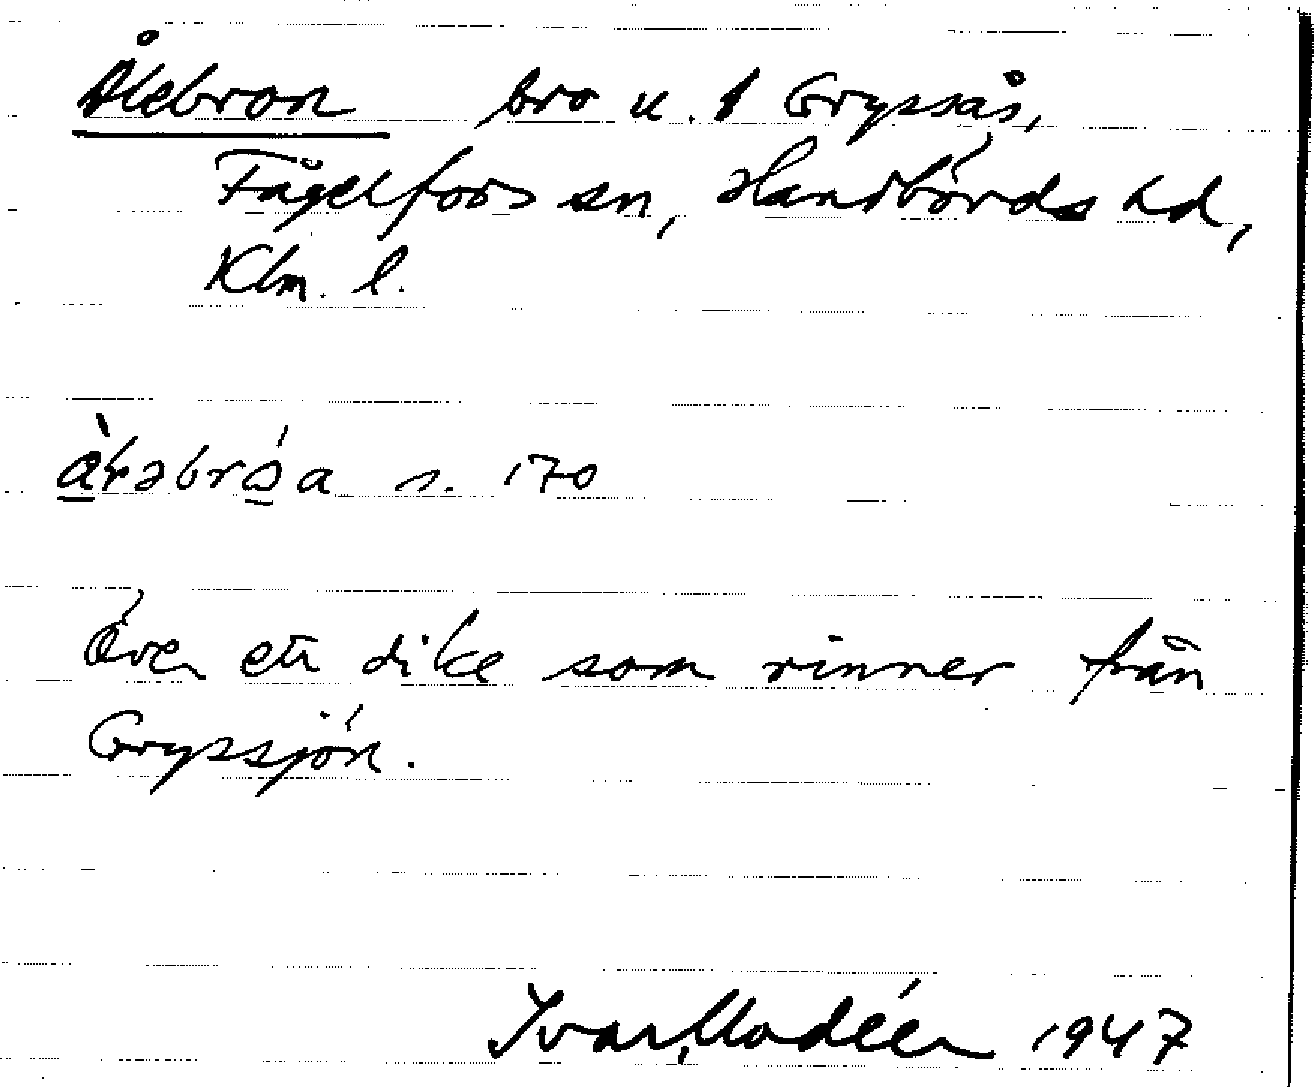 Åkebron bro u. f Gryssås,
Fågelfors sn, Handbörds hd,
Klm. l.
àkəbrǫ́a s. 170
Över ett dike som rinner från
Gryssjön.
Ivar Modéer 1947